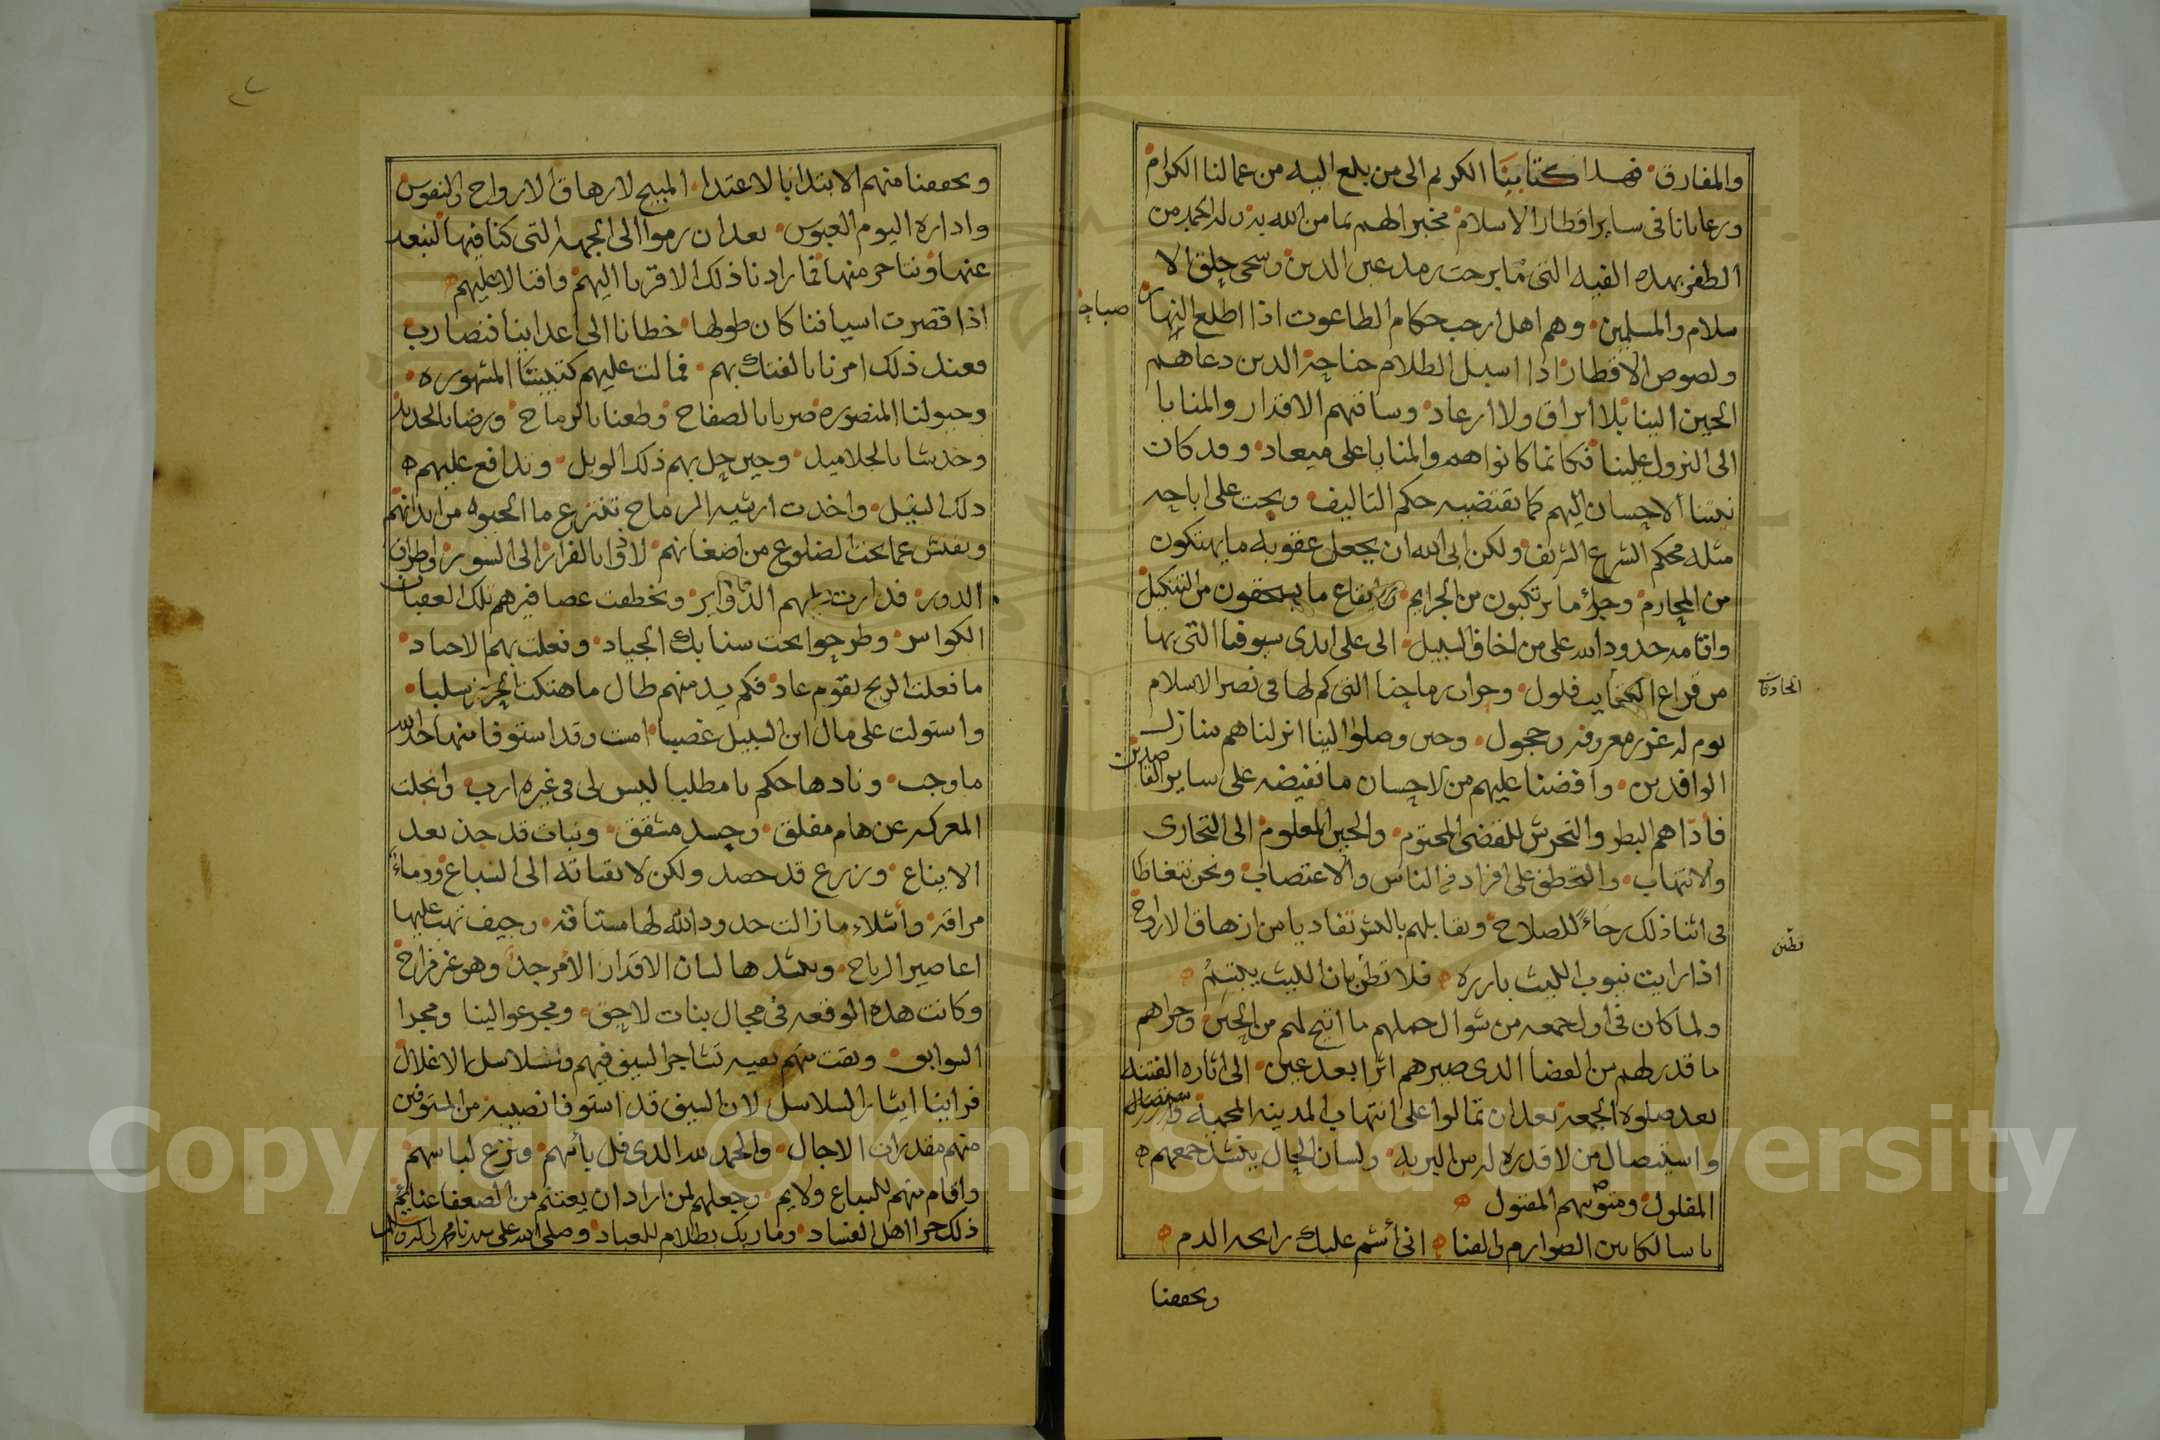 والمفارق فهذا كتابنا الكريم الى من بلغ اليه من عمالنا الكرام
ورعايانا فى ساير اقطار الاسلام مخبرا لهم بما من الله به وله الحمد من
الظفر بهذه الفية التى ما برحت رمد عين الدين وشجى حلق الا
سلام والمسلمين وهم اهل ارحب حكام الطاغوت اذا اطلع النهار
صباحه
ولصوص الاقطار اذا اسبل الظلام جناحه الذين دعاهم
الحين الينا بلا ابراق ولا ارعاد وساقتهم الاقدار والمنايا
الى النزول علينا فكانما كانوا هم والمنايا على ميعاد وقد كان
نيتنا الاحسان اليهم كما يقتضيه حكم التاليف ويحث على اباحه
مثله محكم الشرع الشريف ولكن ابى الله ان يجعل عقوبه ما يهتكون
من المحارم وجزاء ما يرتكبون من الجرايم وايقاع ما يستحقون من التنكيل
واقامه حدود الله على من اخاف السبيل الى على ايدى سيوفنا التى بها
من قراع الكتايب فلول وحراب رماحنا التى كم لها فى نصر الاسلام
يوم له غرر معروفه وحجول وحين وصلوا الينا انزلناهم منازل
الوافدين وافضنا عليهم من الاحسان ما نفيضه على ساير القاصدين
فادّاهم البطر والتحرش للقضى المحتوم والحين المعلوم الى التجارى
والانتهاب والتخطف على افراد من الناس والاغتصاب ونحن نتغاظا
فى اثنا ذلك رجاءً للصلاح ونقابلهم بالبشر تفاديا من ازهاق الارواح
اذا رايت نيوب الليث بارزه فلا تظن بان الليث يبتسم
ولما كان فى اول جمعه من شوال حملهم ما اتيح لهم من الحين وجراهم
ما قدر لهم من القضا الذى صيرهم اثرا بعد عين الى اثاره الفتنه
بعد صلوه الجمعه بعد ان تمالوا على انتهاب المدينه المحميه
واستيصال من لا قدره له من البريه ولسان الحال ينشد جمعهم
المفلول ومتونهم المقتول
يا سالكا بين الصوارم والقنا انى أشم عليك رايحه الدم
وتحققنا
وتحققنا منهم الابتدا بالاعتدا المبيح لازهاق الارواح والنفوس
واداره اليوم العبوس بعد ان رموا الى الجهه التى كنا فيها لنبعد
عنها ونتاخر منها فما زادنا ذلك الا قربا اليهم واقبالا عليهم
اذا قصرت اسيافنا كان طولها خطانا الى اعداينا فنضارب
فعند ذلك امرنا بالفتك بهم فمالت عليهم كتيبتنا المشهوره
وخيولنا المنصوره ضربا بالصفاح وطعنا بالرماح ورضا بالحديد
وخدشا بالجلاميد وحين حل بهم ذلك الوبل وتدافع عليهم
ذلك السيل واخذت ارشيه الرماح تنتزع ما احتوته من ابدانهم
وتفتش عما تحت الضلوع من اضغانهم لاذوا بالفرار الى السور واطراف
الدور فدارت عليهم الدواير وتخطفت عصافيرهم تلك العقبان
الكواسر وطرحوا تحت سنابك الجياد وفعلت بهم الاجناد
ما فعلت الريح بقوم عاد فكم يد منهم طال ما هتكت الحرز سلبا
واستولت على مال ابن السبيل غصبا امست وقد استوفا منها حد الله
ما وجب ونادها حكم يا مطلبا ليس لى فى غيره ارب وانجلت
المعركه عن هام مفلق وجسد مشقق ونبات قد جذ بعد
الايناع وزرع قد حصد ولكن لاقتياته الى السباع ودماء
مراقه وأشلاء ما زالت حدود الله لها مشتاقه وجيف تهب عليها
اعاصير الرياح وينشدها لسان الاقدار الأمر جدّ وهو غير مزاح
وكانت هذه الوقعه فى مجال بنات لاحق ومجر عوالينا ومجرا
السوابق وبقت منهم بقيه تشاجر السيف فيهم وسلاسل الاغلال
فراينا ايثار السلاسل لان السيف قد استوفا نصيبه من المتوفين
منهم مقدرات الاجال والحمد لله الذى فل بأسهم ونزع لباسهم
واقام منهم للسباع ولايم وجعلهم لمن اراد ان يغتنم من الضعفا غنايم
ذلك جزا اهل الفساد وما ربك بظلام للعباد وصلى الله على سيدنا محمد واله وسلم
Copyright © King Saud University